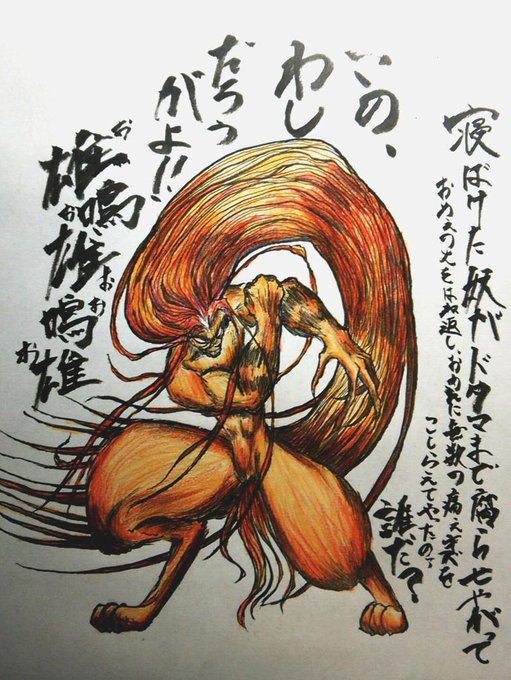 寝ぼけた妖がドタマまで腐らせやがって
おめえの火をはね返しおめえに無数の痛え穴を
こしらえてやったのァ
誰だ?
この、
わし
だろう
がよ!!
雄嗚雄嗚雄